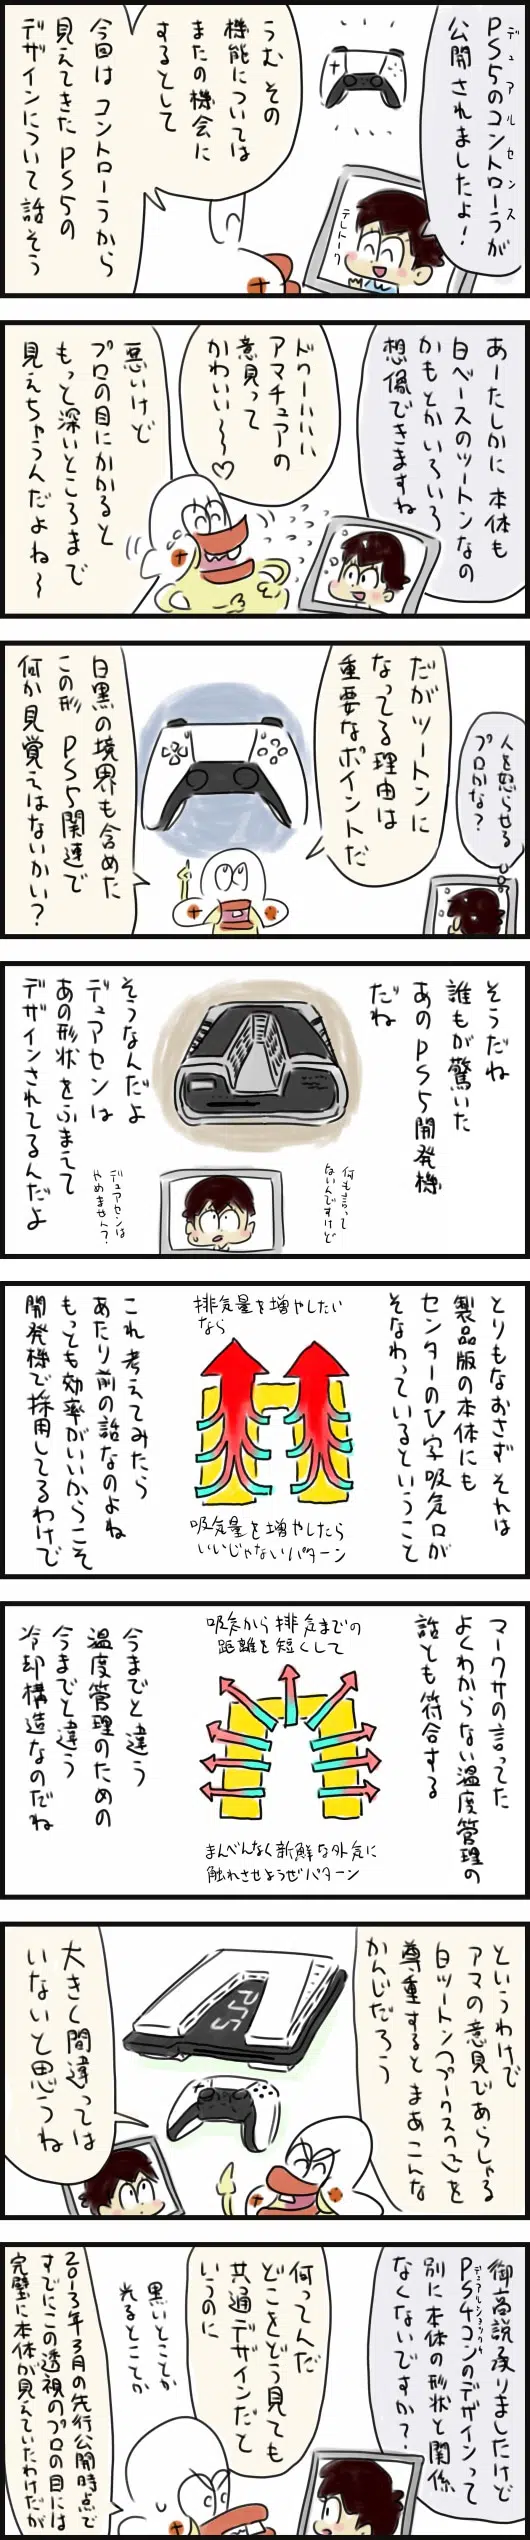 デュアルセンス
PS5のコントローラが
公開されましたよ！
テレトーク
うむ その
機能については
またの機会に
するとして
今回は コントローラから
見えてきた PS5の
デザインについて 話そう
あーたしかに 本体も
白ベースのツートンなの
かもとかいろいろ
想像できますね
ドゥーハハハハ
アマチュアの
意見って
かわいい〜♡
悪いけど
プロの目にかかると
もっと深いところまで
見えちゃうんだよね〜
人を怒らせる
プロかな？
だがツートンに
なってる理由は
重要なポイントだ
白黒の境界も含めた
この形 PS5関連で
何か見覚えはないかい？
そうだね
誰もが驚いた
あのPS5開発機
だね
何も言って
ないんですけど
デュアセンは
やめません？
そうなんだよ
デュアセンは
あの形状をふまえて
デザインされてるんだよ
とりもなおさず それは
製品版の本体にも
センターのV字吸気口が
そなわっているということ
排気量を増やしたい
なら
吸気量を増やしたら
いいじゃないパターン
これ 考えてみたら
あたり前の話なのよね
もっとも効率がいいからこそ
開発機で採用してるわけで
マークサの言ってた
よくわからない温度管理の
話とも符合する
吸気から排気までの
距離を短くして
まんべんなく新鮮な外気に
触れさせようぜパターン
今までと違う
温度管理のための
今までと違う
冷却構造なのだね
というわけで
アマの意見であらしゃる
白ツートン(プークスクス)を
尊重すると まあこんな
かんじだろう
PS5
大きく間違っては
いないと思うね
御高説承りましたけど
デュアルショック4
PS4コンのデザインって
別に本体の形状と関係
なくないですか？
何ってんだ
どこをどう見ても
共通デザインだと
いうのに
黒いとことか
光るとことか
2013年3月の先行公開時点で
すでにこの透視のプロの目には
完璧に本体が見えていたわけだが